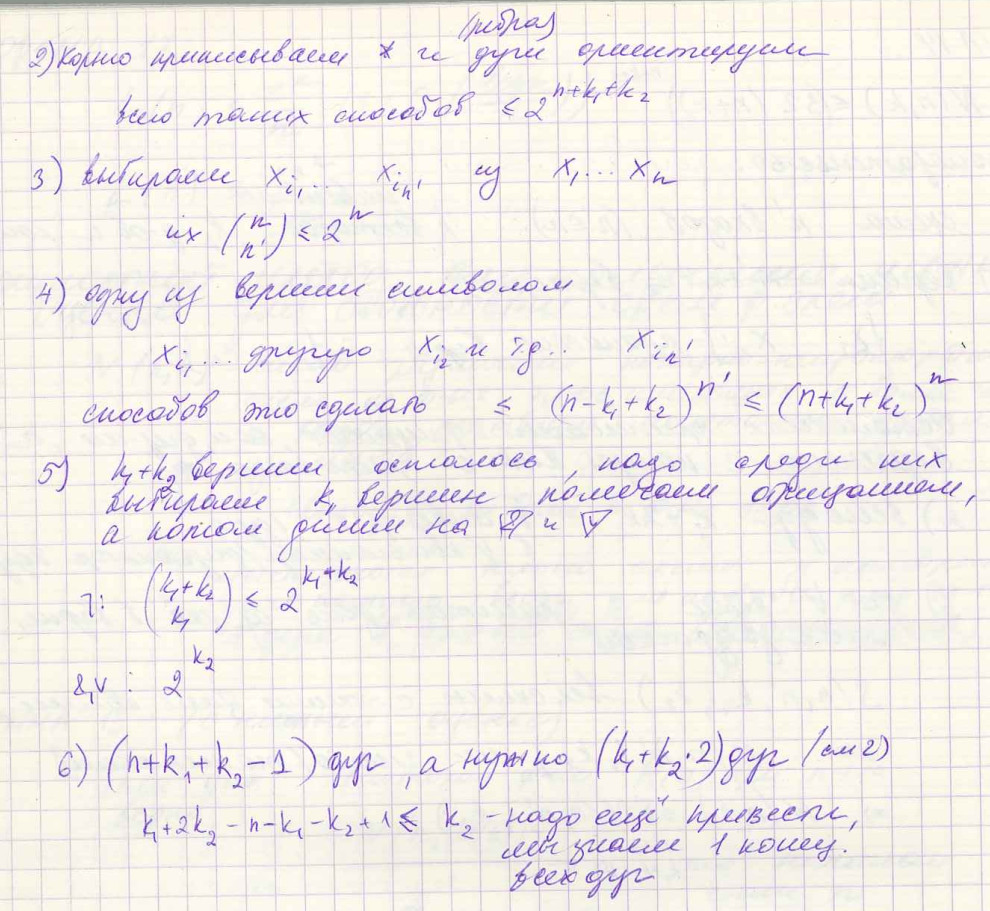 (ребра)
2) Корню приписываем * и дуги ориентируем
всего таких способов ≤ 2^{n+k₁+k₂}
3) выбираем x_{i₁} ... x_{i_{n'}} из x₁ ... x_n
их (n n') ≤ 2^n
4) одну из вершин символом
x_{i₁} ... другую x_{i₂} и т.д... x_{i_{n'}}
способов это сделать ≤ (n-k₁+k₂)^{n'} ≤ (n+k₁+k₂)^n
5) k₁+k₂ вершин осталось, надо среди них
выбираем k₁ вершин помечаем отрицанием,
а потом делим на & и ∨
¬: (k₁+k₂ k₁) ≤ 2^{k₁+k₂}
&,∨: 2^{k₂}
6) (n+k₁+k₂-1) дуг, а нужно (k₁+k₂·2) дуг (см 2)
k₁+2k₂-n-k₁-k₂+1 ≤ k₂ - надо ещё привести,
мы знаем 1 конец.
всех дуг